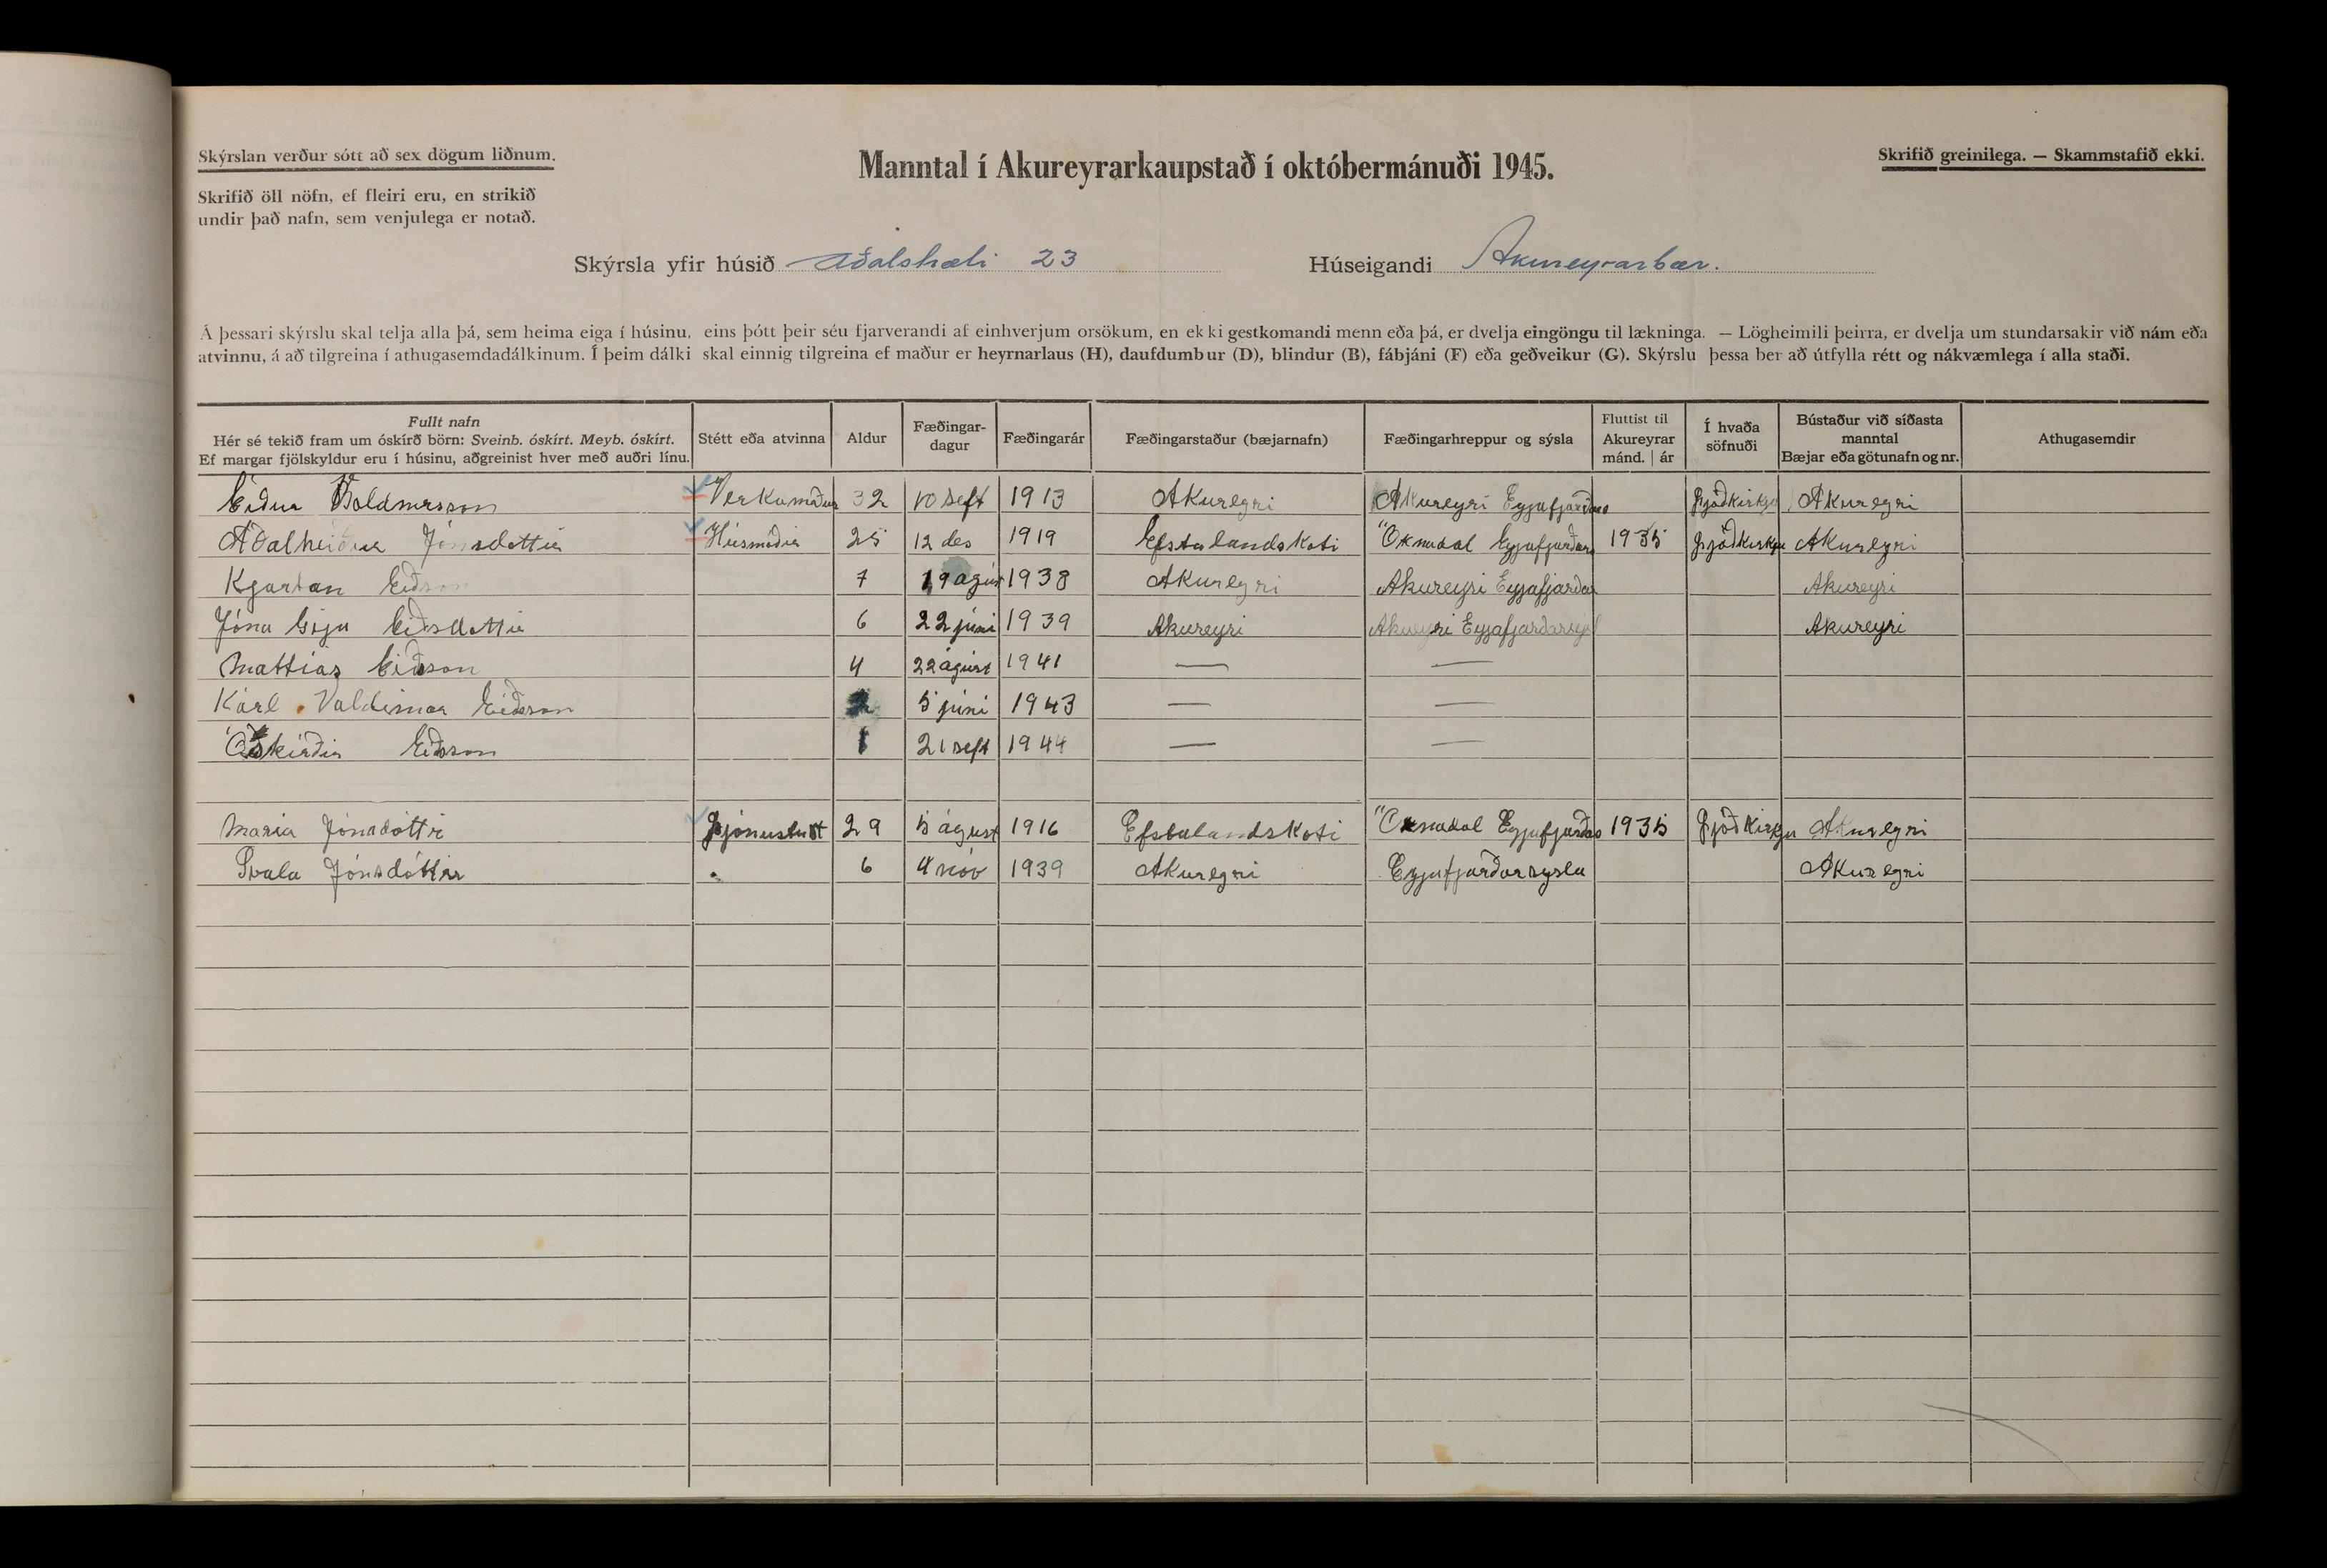 Skýrslan verður sótt að sex dögum liðnum.
Skrifið öll nöfn, ef fleiri eru, en strikið
undir það nafn, sem venjulega er notað.
Manntal í Akureyrarkaupstað í októbermánuði 1945.
Skrifið greinilega. — Skammstafið ekki.
Skýrsla yfir húsið Aðalstræti 23 Húseigandi Akureyrarbær.
Á þessari skýrslu skal telja alla þá, sem heima eiga í húsinu, eins þótt þeir séu fjarverandi af einhverjum orsökum, en ekki gestkomandi menn eða þá, er dvelja eingöngu til lækninga. — Lögheimili þeirra, er dvelja um stundarsakir við nám eða
atvinnu, á að tilgreina í athugasemdadálkinum. Í þeim dálki skal einnig tilgreina ef maður er heyrnarlaus (H), daufdumbur (D), blindur (B), fábjáni (F) eða geðveikur (G). Skýrslu þessa ber að útfylla rétt og nákvæmlega í alla staði.
Fullt nafn
Hér sé tekið fram um óskírð börn: Sveinb. óskírt. Meyb. óskírt.
Ef margar fjölskyldur eru í húsinu, aðgreinist hver með auðri línu.
Stétt eða atvinna
Aldur
Fæðingar-
dagur
Fæðingarár
Fæðingarstaður (bæjarnafn)
Fæðingarhreppur og sýsla
Fluttist til
Akureyrar
mánd. | ár
Í hvaða
söfnuði
Bústaður við síðasta
manntal
Bæjar eða götunafn og nr.
Athugasemdir
Eiður Valdmersson Verkamaður 32 10 sept 1913 Akureyri Akureyri Eyjafjarðar Þjóðkirkju Akureyri
Aðalheiður Jónsdottir Húsmóðir 25 12 des 1919 Efstalandskoti Öxnadal Eyjafjarðar 1935 Þjóðkirkju Akureyri
Kjartan Eiðson 7 19 agúst 1938 Akureyri Akureyri Eyjafjarðar Akureyri
Jóna Gija Eiðsdottir 6 22 júni 1939 Akureyri Akureyri Eyjafjarðarsýsl Akureyri
Mattias Eiðson 4 22 ágúst 1941 — —
Karl Valdimar Eiðsson 2 5 júni 1943 — —
Óskirðir Eiðsson 1 21 sept 1944 — —
Maria Jónsdóttir Þjónustust 29 5 ágúst 1916 Efstalandskoti Öxnadal Eyjafjarðar 1935 Þjóðkirkju Akureyri
Svala Jónsdóttir 6 4 nóv 1939 Akureyri Eyjafjarðarsysla Akureyri